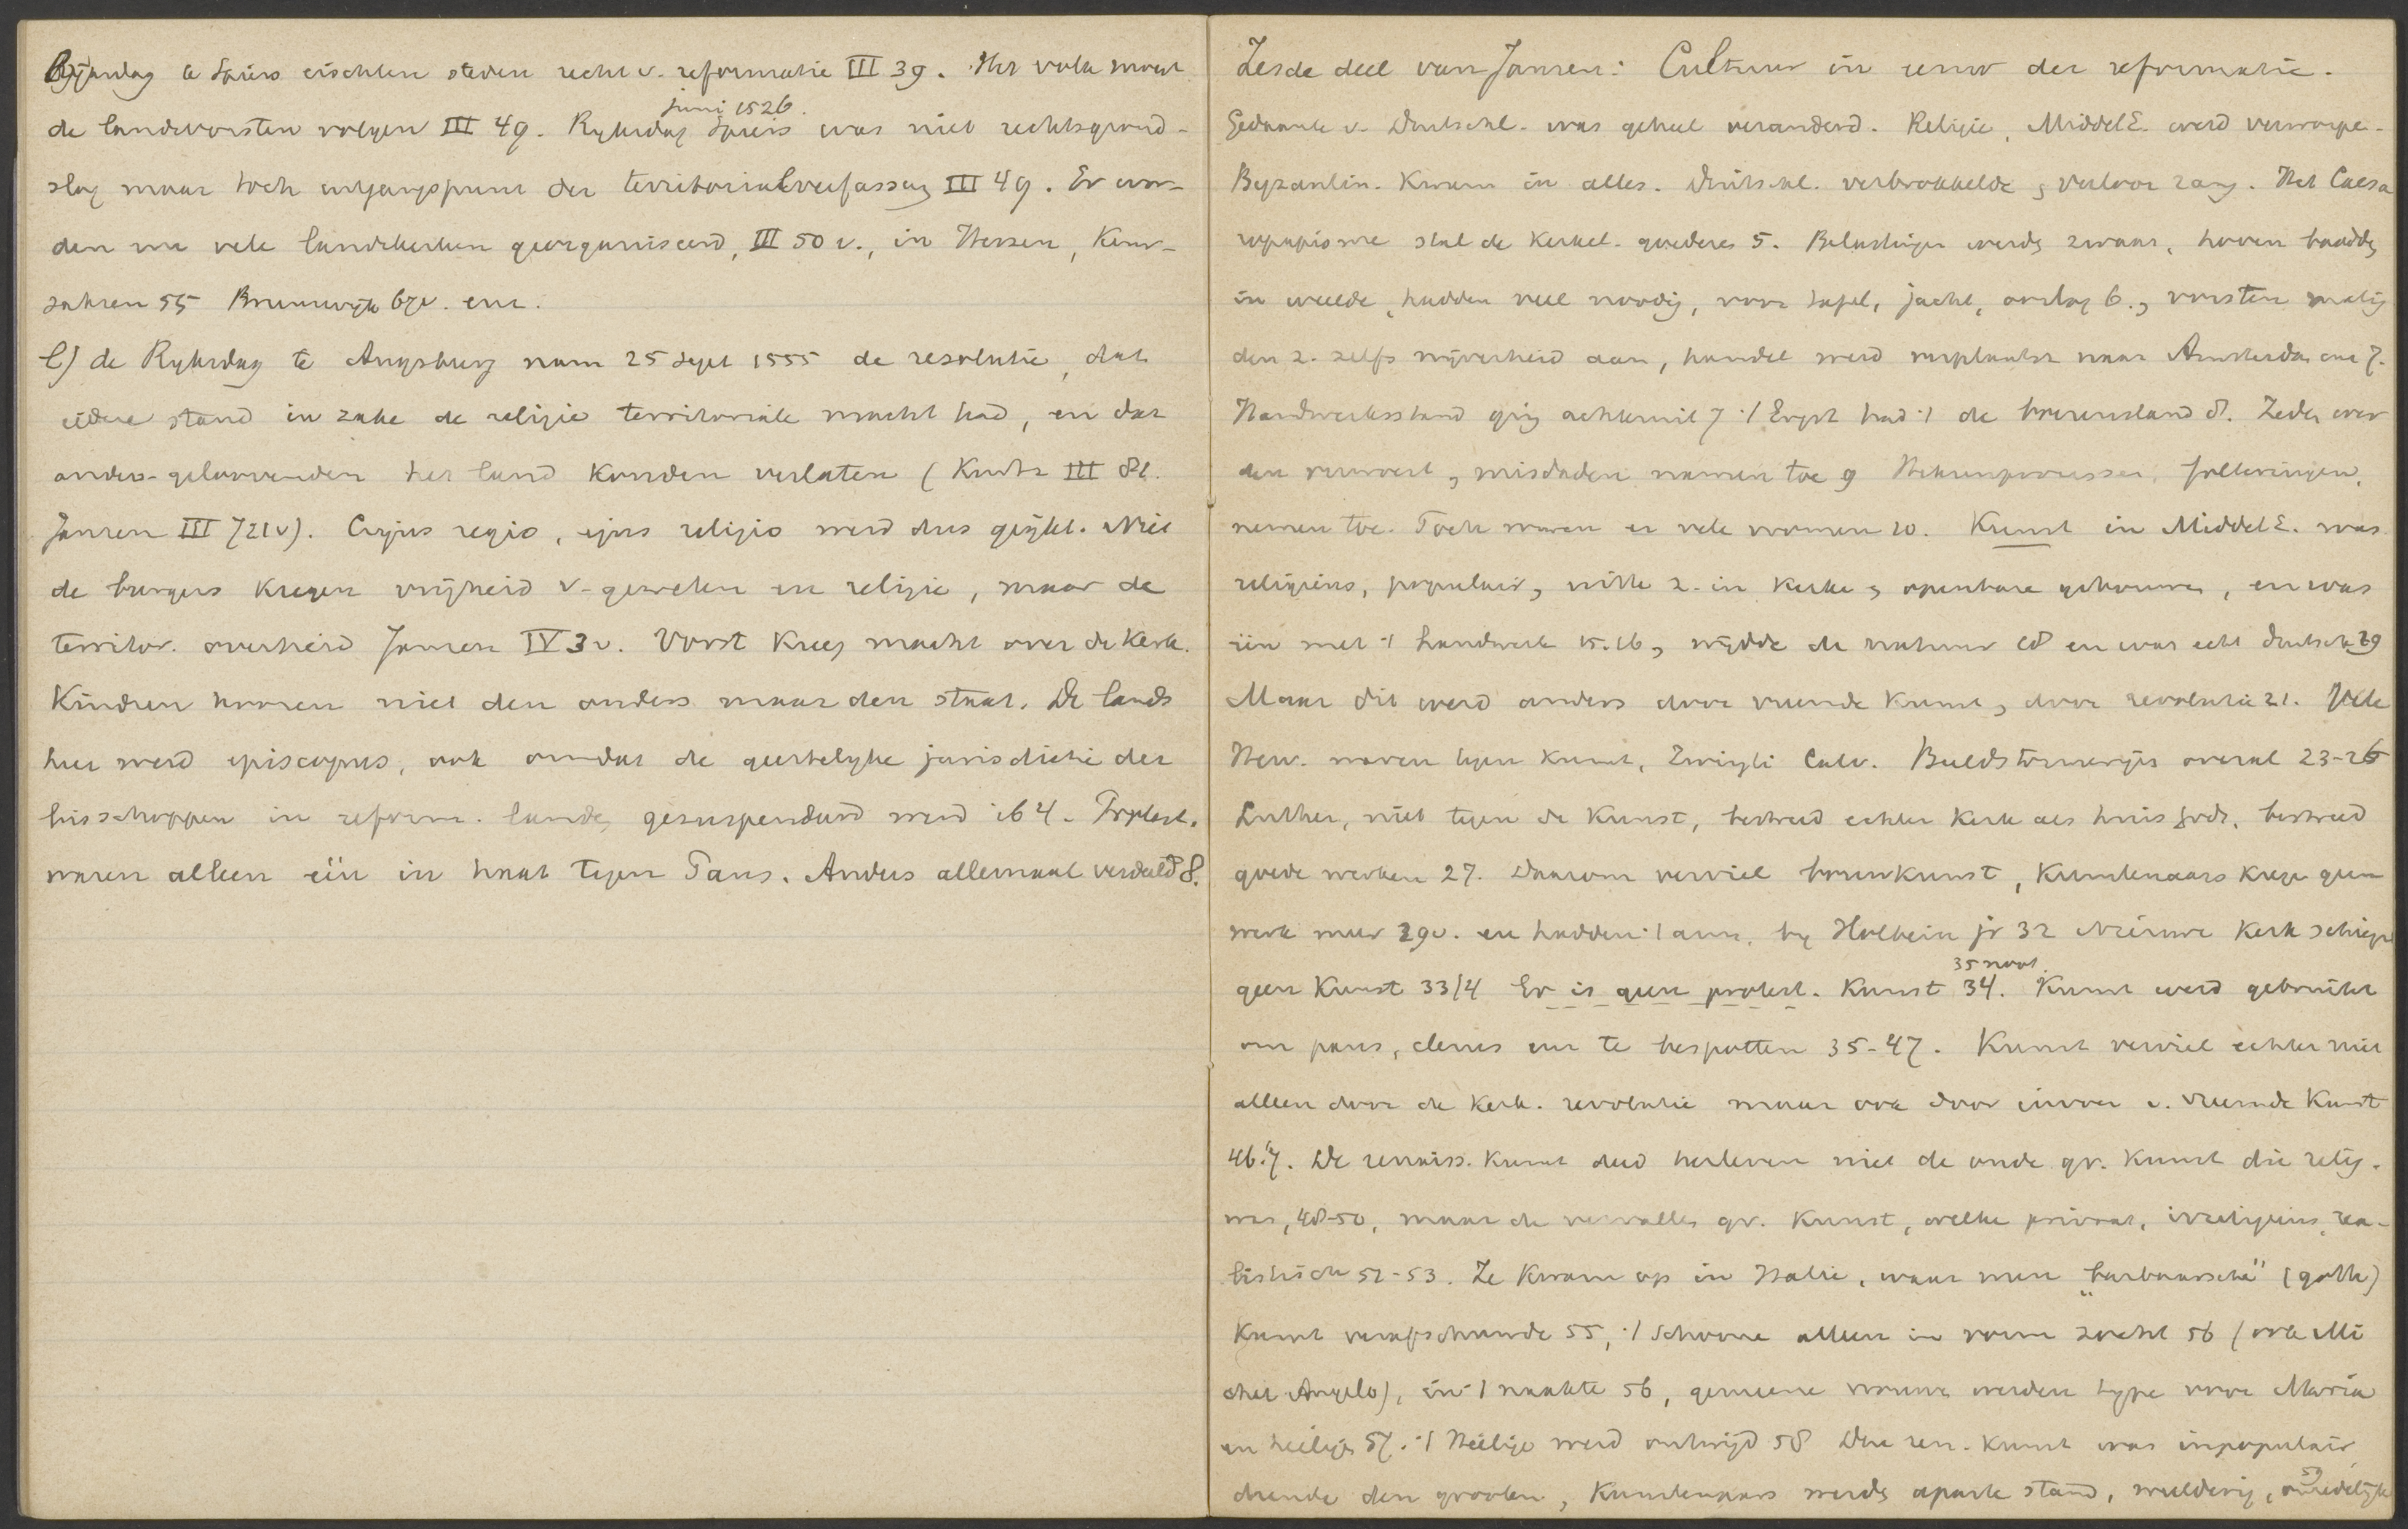 Rijksdag te Spiers eischten steden recht v. reformatie III 39. Het volk moest
juni 1526.
de landvorsten volgen III 49. Ryksdag Spiers was niet rechtsgrond-
slag maar toch uitgangspunt der territorialverfassung III 49. Er wor-
den nu vele landskerken georganiseerd, III 50 v., in Hessen, Keur-
sahsen 55 Brunswijk 67v. enz.
de Ryksdag te Augsburg nam 25 Sept 1555 de resolutie, dat
iedere stand in zake de religie territoriale macht had, en dat
anders-geloovenden het land konden verlaten (Kurtz III 81.
Jansen III 721v). Cujus regio, ejus religio werd dus geijkt. Niet
de burgers kregen vrijheid v. geweten en religie, maar de
territor. overheid Jansen IV 3v. Vorst kreeg macht over de Kerk.
Kindren hooren niet den ouders maar den staat. De lands
heer werd episcopus, ook omdat de geestelyke jurisdictie der
bisschoppen in reform. landen gesuspendeerd werd ib 4. Protest.
waren alleen één in haat tegen Paus. Anders allemaal verdeeld 8.
Zesde deel van Jansen: Cultuur in eeuw der reformatie.
Gedaante v. Duitschl. was geheel veranderd. Religie, MiddelE. werd verworpe-
Byzantin. kwam in alles. Duitschl. verbrokkelde, verloor rang. Het Caesa
ropapisme stal de kerkel. goederen 5. Belastingen werden zwaar, hoven baadden
in weelde, hadden veel noodig, voor tafel, jacht, oorlog 6., vorsten matig
den z. zelfs nijverheid aan, handel werd verplaatst naar Amsterdam enz 7.
Handwerksstand ging achteruit 7 't Ergst had 't de boerenstand 8. Zeden wer
den verwoest, misdaden namen toe 9 Heksenprocessen, folteringen,
nemen toe. Toch waren er vele vromen 10. Kunst in MiddelE. was
religieus, populair, uitte z. in kerken, openbare gebouwen, en was
één met 't handwerk 15.16, wijdde de natuur 18 en was echt duitsch 19
Maar dit werd anders door vreemde kunst, door revolutie 21. Vele
Herv. waren tegen kunst, Zwingli Calv. Beeldstormerijen overal 23-26
Luther, niet tegen de Kunst, bestreed echter kerk als huis Gods, bestreed
goede werken 27. Daarom verviel bouwkunst, Kunstenaars kregen geen
werk meer 29v. en hadden 't arm, bv Holbein jr 32 Nieuwe Kerk schiep
35 noot.
geen Kunst 33/4 Er is geen protest. Kunst 34. Kunst werd gebruikt
om paus, clerus enz te bespotten 35-47. Kunst verviel echter niet
alleen door de kerk. revolutie maar ook door invoer v. vreemde Kunst
46.7. De renaiss. kunst deed herleven niet de oude gr. Kunst die relig.
was, 48-50, maar de vervallen gr. Kunst, welke privaat, irreligieus, rea-
listisch 52-53. Ze kwam op in Italie, waar men "barbaarsche" (goth)
Kunst verafschuwde 55, 't schoone alleen in vorm zocht 56 (ook Mi
chel Angelo), in 't naakte 56, gemeene vrouwen werden type voor Maria
en heiligen 57. 't Heilige werd ontwijd 58 Deze ren. kunst was inpopulair
diende den grooten, Kunstenaars werden aparte stand, weelderig, onzedelijk
59